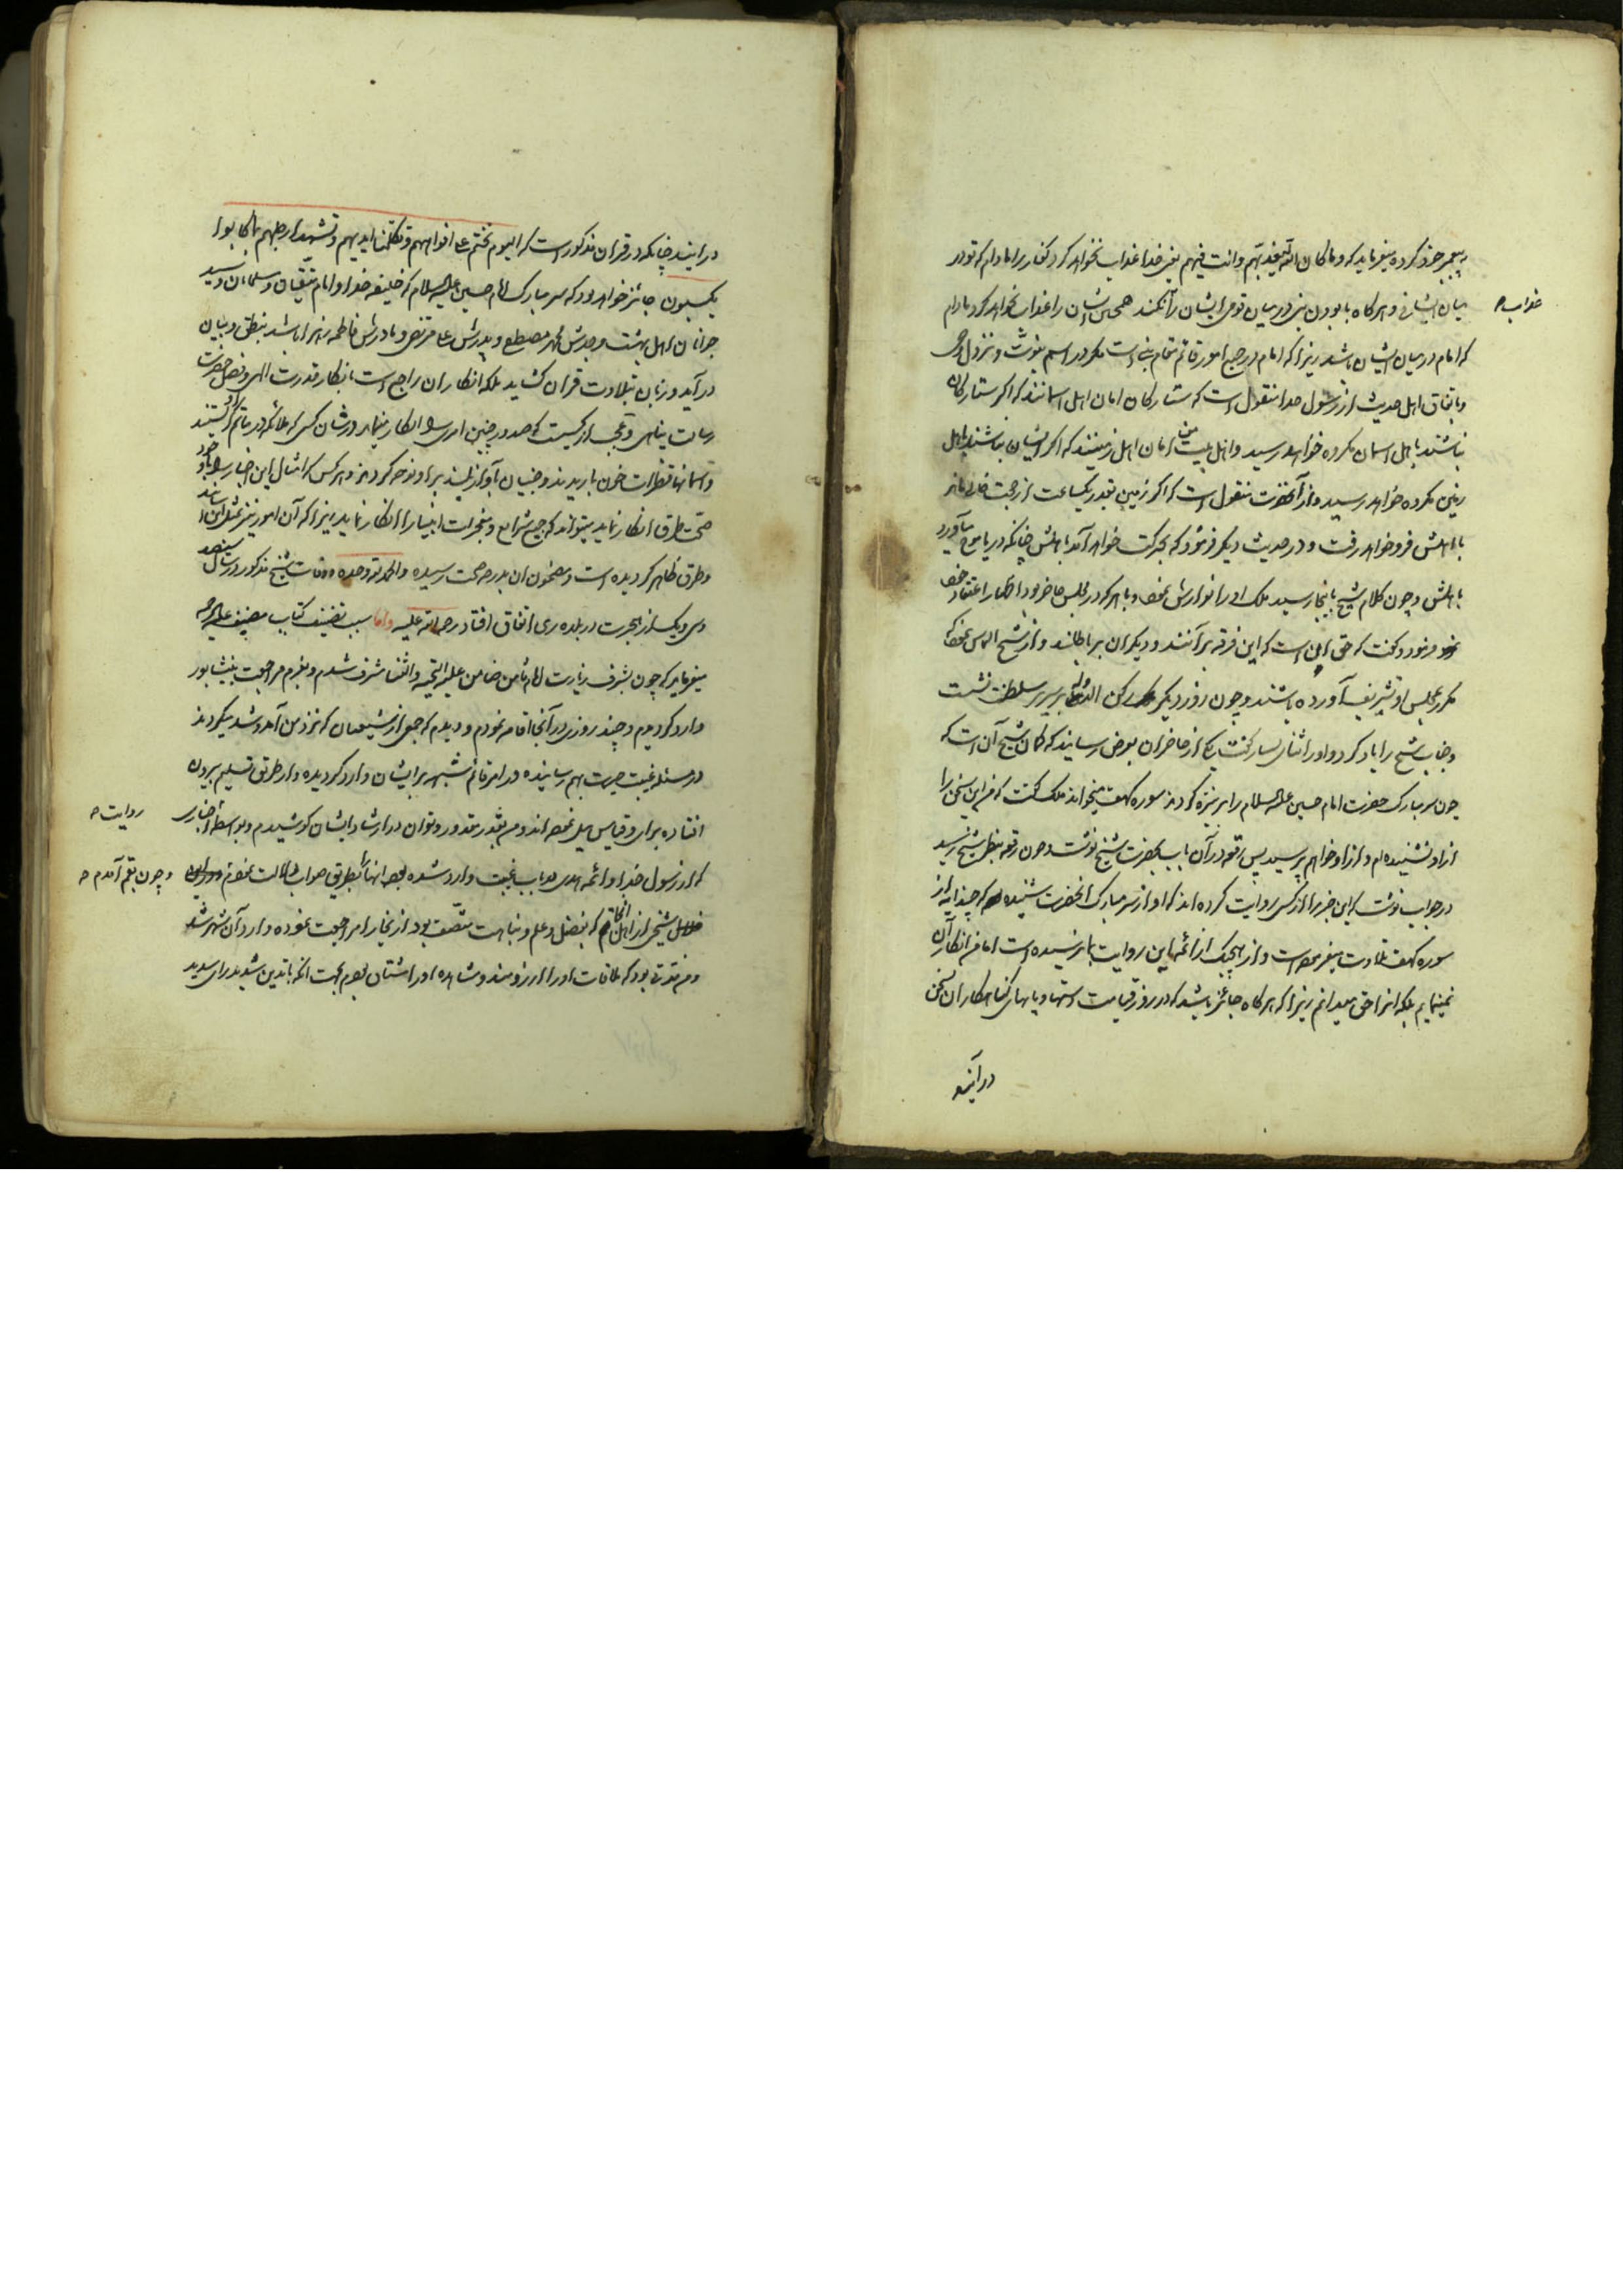 به پیغمبر خود کرده میفرماید که و ما کان الله لیعذبهم و انت فیهم یعنی خدا عذاب نخواهد کرد کفار را مادام که تو در
میان ایشانی و هر گاه با بودن نبی در میان قومی ایشان را نکنند همچنین ایشان را عذاب نخواهد کرد مادام
عذاب
که امام در میان ایشان باشد زیرا که امام در جمیع امور قائم مقام نبی است مگر در اسم نبوت و نزول وحی
و باتفاق اهل حدیث از رسول خدا منقول است که ستارگان امان اهل اسمانند که اگر ستارگان
نباشند باهل اسمان مکروه خواهد رسید و اهل بیت من امان اهل زمینند که اگر ایشان نباشند باهل
زمین مکروه خواهد رسید و از آنحضرت منقول است که اگر زمین بقدر یکساعت از حجت خالی ماند
با اهلش فرو خواهد رفت و در حدیث دیگر فرمود که بحرکت خواهد آمد با اهلش چنانکه دریا موج میآورد
باهلش و چون کلام شیخ باینجا رسید ملک او را نوازش نمود و با هر که در مجلس حاضر بود اظهار اعتقاد خود
نمود و گفت که حق این است که این فرقه بر آنند و دیگران بر باطلند و از شیخ التماس نمود که
مکرر بمجلس او تشریف آورده باشند و چون روز دیگر رکن الدوله بر سریر سلطنت نشست
و جناب شیخ را یاد کرد و او را ثنای بسیار گفت یکی از حاضران بعرض رسانید که گمان شیخ آن است که
چون سر مبارک حضرت امام حسین علیه السلام را بر نیزه کردند سوره کهف میخواند ملک گفت که من این سخن را
از او نشنیده‌ام و از او خواهم پرسید پس رقعه در آن باب بحضرت شیخ نوشت و چون رقعه بنظر شیخ رسید
در جواب نوشت که این خبر را از کسی روایت کرده‌اند که او از سر مبارک آنحضرت شنیده که چند ایه از
سوره کهف تلاوت میفرمود است و از هیچیک از ائمه این روایت بما نرسیده است اما من انکار آن
نمینمایم بلکه آنرا حق میدانم زیرا که هر گاه جائز باشد که در روز قیامت دستها و پاهای گناهکاران بسخن
در آیند
در ایند چنانکه در قران مذکور است که الیوم نختم علی افواههم و تکلمنا ایدیهم و تشهد ارجلهم بما کانوا
یکسبون جائز خواهد بود که سر مبارک امام حسین علیه السلام که خلیفه خدا و امام متقیان و مسلمانان و سید
جوانان اهل بهشت و جدش محمد مصطفی و پدرش علی مرتضی و مادرش فاطمه زهرا باشد بنطق و بیان
در آید و زبان بتلاوت قران گشاید بلکه انکار ان راجع است بانکار قدرت الهی و فضل حضرت
رسالت پناهی و عجب از کسیست که صدور چنین امری را انکار مینماید در شان کسی که ملائکه در ماتم او گریستند
و اسمانها قطرات خون باریدند و جنیان بآواز بلند بر او نوحه کردند و هر کس که امثال این اخبار را با وجود
صحت طرق انکار نماید میتواند که جمیع شرایع و معجزات انبیا را انکار نماید زیرا که آن امور نیز بمثل این اسانید
و طرق ظاهر گردیده است و مضمون ان بدرجه صحت رسیده و الحمد لله وحده و وفات شیخ مذکور در سال سیصد
و سی و یک از هجرت در بلده ری اتفاق افتاد رحمة الله علیه و اما سبب تصنیف کتاب مصنف علیه الرحمه
میفرماید که چون بشرف زیارت امام ثامن ضامن علیه التحیه و الثنا مشرف شدم و بعزم مراجعت بنیشابور
وارد گردیدم و چند روزی در آنجا اقامه نمودم و دیدم که جمعی از شیعیان که نزد من آمد و شد میکردند
در مسئله غیبت حیرت بهم رسانیده در امر قائم شبهه بر ایشان وارد گردیده و از طریق تسلیم بیرون
افتاده برای و قیاس میل نموده‌اند و من بقدر مقدور و توان در ارشاد ایشان کوشیدم و بواسطه اخباری
روایت
که از رسول خدا و ائمه هدی در باب غیبت وارد شده بود انها را بطریق صواب دلالت نمودم
و چون بقم آمدم
شیخی از اهل انجا که بفضل و علم و نباهت متصف بود از بخارا مراجعت نموده وارد آن شهر شد
و من مدتی بود که ملاقات او را ارزومند و مشاهده او را مشتاق بودم بجهت انکه با تدین شدید رای سدید